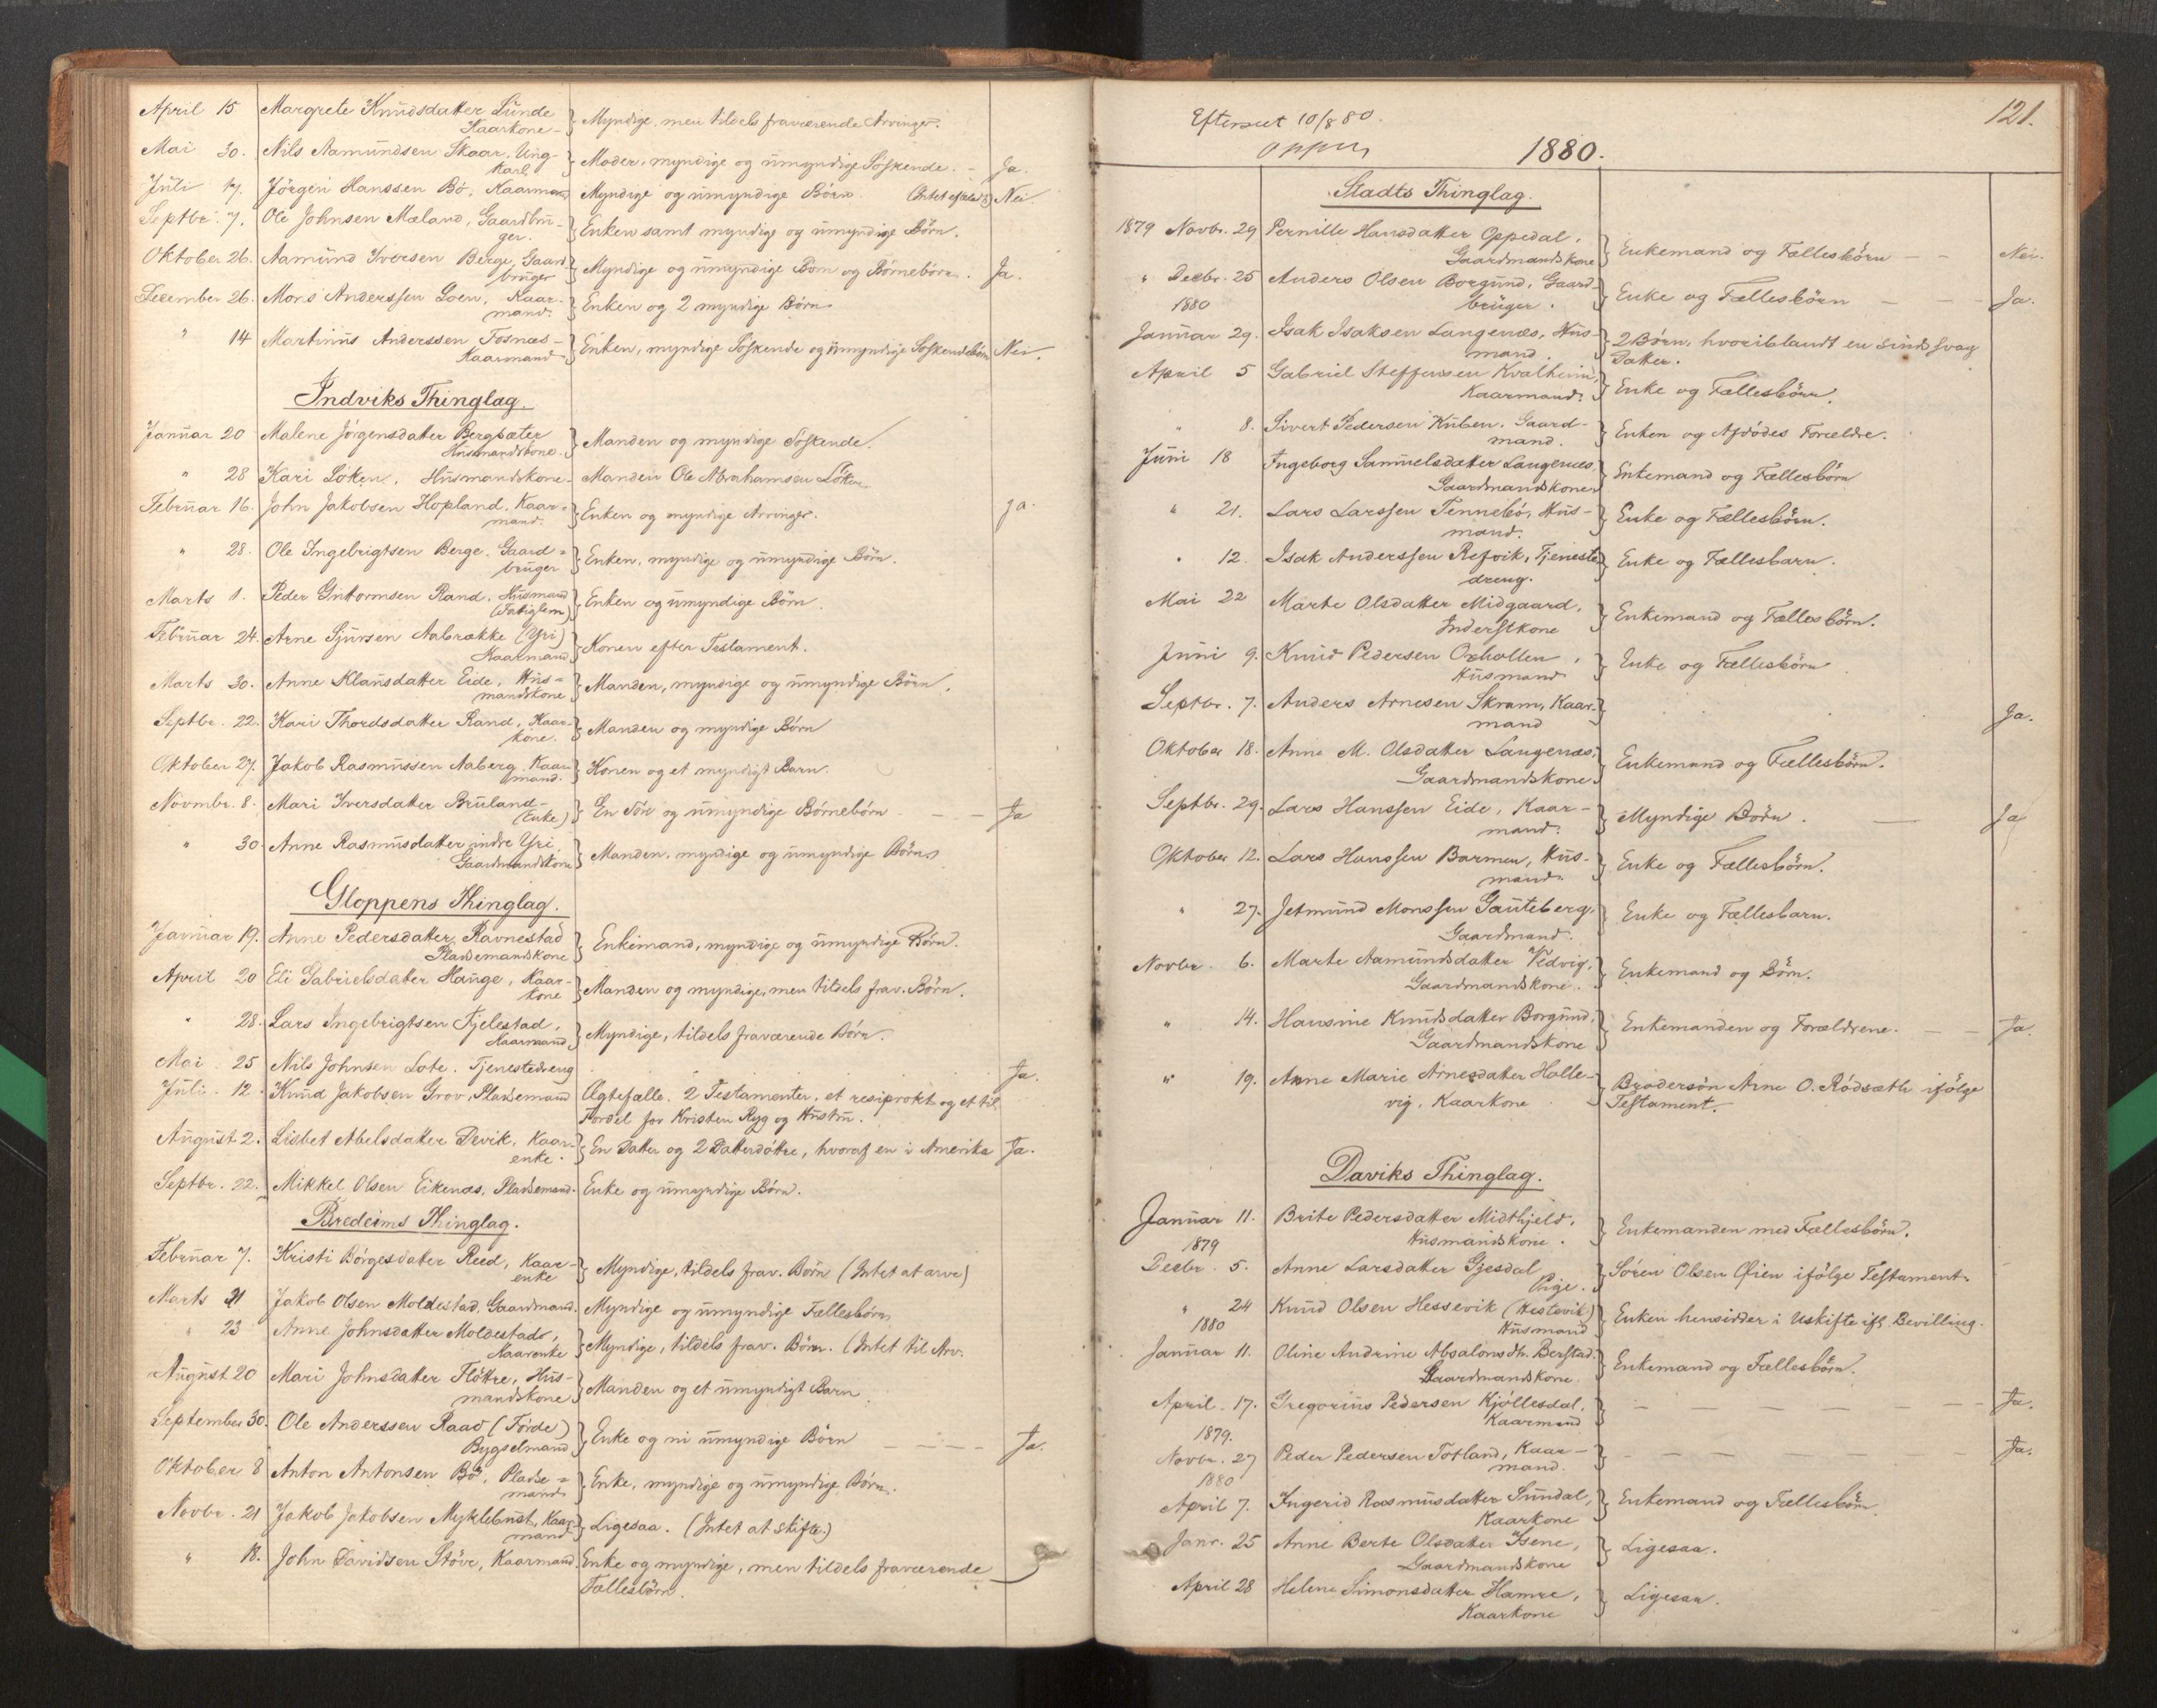 April 15 Margrete Knudsdatter Lunde
Kaarkone - } Myndige, men tildels fraværende Arvinger.
Mai 30. Nils Aamundsen Skaar, Ung-
karl } Moder, myndige og umyndige Søskende. - Ja.
Juli 17. Jørgen Hanssen Bø, Kaarmand Myndige og umyndige Børn. Nei.
Septbr. 7. Ole Johnsen Mæland, Gaardbru-
ger. } Enken samt myndige og umyndige Børn.
Oktober 26. Aamund Iversen Berge, Gaard
bruger } Myndige og umyndige Børn og Børnebørn. Ja.
December 26. Mons Anderssen Loen, Kaar-
mand. } Enken og 2 myndige Børn
" 14 Martinus Anderssen Fosnæs -
Kaarmand } Enken, myndige Søskende og umyndige Søskendebørn Nei.
Indviks Thinglag.
Januar 20 Malene Jørgensdatter Bergsæter
Husmandskone. } Manden og myndige Søskende.
" 28 Kari Løken, Husmandskone - Manden Ole Abrahamsen Løken
Februar 16. John Jakobsen Hopland, Kaar-
mand. } Enken og myndige Arvinger. Ja.
" 28. Ole Ingebrigtsen Berge, Gaard=
bruger } Enken, myndige og umyndige Børn.
Marts 1. Peder Guttormsen Rand, Husmand
(Fatiglem) } Enken og umyndige Børn.
Februar 24. Arne Sjursen Aabrække (Yri)
Kaarmand } Konen efter Testament.
Marts 30. Anne Klausdatter Eide, Hus=
mandskone } Manden, myndige og umyndige Børn.
Septbr. 22. Kari Thordsdatter Rand, Kaar-
kone. } Manden og myndige Børn
Oktober 27. Jakob Rasmussen Aaberg, Kaar
mand. } Konen og et myndigt Barn.
Novmbr. 8. Mari Iversdatter Bruland -
(Enke) } En Søn og umyndige Børnebørn - - Ja
" 30. Anne Rasmusdatter indre Yri
Gaardmandskone } Manden, myndige og umyndige Børn
Gloppens Thinglag.
Januar 19. Anne Pedersdatter Ravnestad
Pladsemandskone } Enkemand, myndige og umyndige Børn.
April 20 Eli Gabrielsdatter Hauge, Kaar-
kone } Manden og myndige, men tildels frav. Børn.
" 28. Lars Ingebrigtsen Fjelestad,
Kaarmand } Myndige, tildels fraværende Børn.
Mai 25 Nils Johnsen Lote. Tjenestedreng Ja.
Juli 12. Knud Jakobsen Grov, Pladsemand Ægtefælle. 2 Testamenter, et resiprokt og et til
Fordel for Kristen Ryg og Hustru.
August 2. Lisbet Abelsdatter Devik, Kaar-
enke. } En Datter og 2 Datterdøttre, hvoraf en i Amerika Ja.
Septbr. 22. Mikkel Olsen Eikenæs, Pladsemand. Enke og umyndige Børn.
Bredeims Thinglag.
Februar 7. Kristi Børgesdatter Reed, Kaar-
enke } Myndige, tildels frav. Børn (Intet at arve)
Marts 21 Jakob Olsen Moldestad, Gaardmand. Myndige og umyndige Fællesbørn
" 23 Anne Johnsdatter Moldestad,
Kaarenke } Myndige, tildels frav. Børn. (Intet til Arv.
August 20 Mari Johnsdatter Fløtre, Hus-
mandskone } Manden og et umyndigt Barn.
September 30. Ole Anderssen Raad (Førde)
Bygselmand } Enke og ni umyndige Børn - - - Ja.
Oktober 8 Anton Antonsen Bø, Pladse=
mand } Enke, myndige og umyndige Børn.
Novbr. 21 Jakob Jakobsen Myklebust, Kaar-
mand } Ligesaa. (Intet at skifte.)
" 18. John Davidsen Støve, Kaarmand. Enke og myndige, men tildels fraværende
Fællesbørn.
Efterseet 10/8 80.
121.
1880.
Stadts Thinglag.
1879 Novbr. 29 Pernille Hansdatter Oppedal,
Gaardmandskone } Enkemand og Fællesbørn - - Nei.
" Decbr. 25 Anders Olsen Borgund, Gaard-
1880 bruger. } Enke og Fællesbørn - - - Ja.
Januar 29. Isak Isaksen Langenæs, Hus-
mand. } 2 Børn, hvoriblandt en sindssvag
Datter.
April 5 Gabriel Steffensen Kvalheim,
Kaarmand. } Enke og Fællesbørn.
" 8. Sivert Pedersen Kuben, Gaard-
mand. } Enken og Afdødes Forældre.
Juni 18 Ingeborg Samuelsdatter Langenæs,
Gaardmandskone } Enkemand og Fællesbørn
" 21. Lars Larssen Tennebø, Hus-
mand. } Enke og Fællesbørn.
" 12. Isak Anderssen Refvik, Tjeneste
dreng. } Enke og Fællesbarn.
Mai 22 Marte Olsdatter Midgaard,
Inderstkone } Enkemand og Fællesbørn.
Juni 9. Knud Pedersen Oxhollen,
Husmand } Enke og Fællesbørn.
Septbr. 7. Anders Arnesen Skram, Kaar-
mand } Ja.
Oktober 18. Anne M. Olsdatter Langenæs,
Gaardmandskone } Enkemand og Fællesbørn.
Septbr. 29. Lars Hanssen Eide, Kaar-
mand. } Myndige Børn. - Ja
Oktober 12. Lars Hanssen Barmen, Hus-
mand. } Enke og Fællesbørn.
" 27. Jetmund Monssen Gauteberg,
Gaardmand. } Enke og Fællesbarn.
Novbr. 6. Marte Aamundsdatter Vedvig,
Gaardmandskone. } Enkemand og Børn.
" 14. Hansine Knudsdatter Borgund,
Gaardmandskone } Enkemanden og Forældrene. - - Ja.
" 19. Anne Marie Arnesdatter Holle-
vig, Kaarkone } Brodersøn Arne O. Rødsæth ifølge
Testament.
Daviks Thinglag.
Januar 11. Brite Pedersdatter Midthjeld,
1879 Husmandskone. } Enkemanden med Fællesbørn.
Decbr. 5. Anne Larsdatter Gjesdal
Pige. } Søren Olsen Øien ifølge Testament.
" 24 Knud Olsen Hessevik (Hestevik)
1880 Husmand } Enken hensidder i Uskifte ifl. Bevilling.
Januar 11. Oline Andrine Absalonsdtr. Berstad.
Gaardmandskone. } Enkemand og Fællesbørn.
April 17. Gregorius Pedersen Kjøllesdal,
Kaarmand } - - - - - - Ja.
1879.
Novbr. 27 Peder Pedersen Totland, Kaar-
mand. } - - - - - Ja.
1880
April 7. Ingerid Rasmusdatter Sundal,
Kaarkone } Enkemand og Fællesbørn
Janr. 25 Anne Berte Olsdatter Isene,
Gaardmandskone } Ligesaa.
April 28 Helene Simonsdatter Hamre,
Kaarkone } Ligesaa.